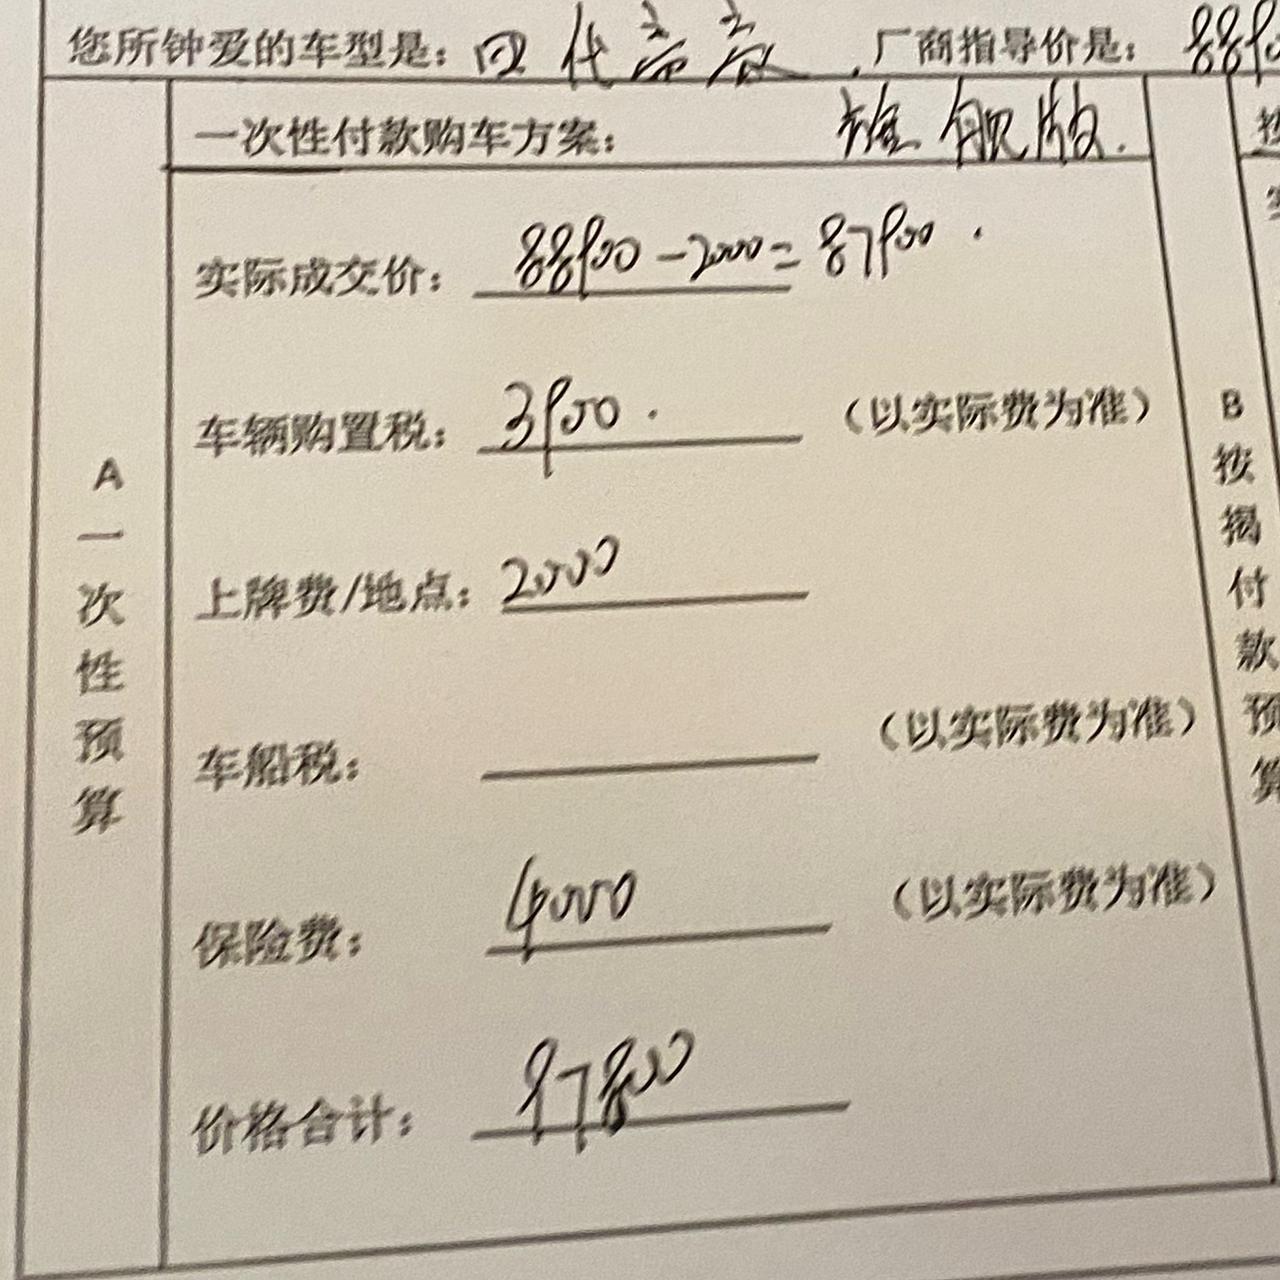 您所钟爱的车型是: 四代帝豪 厂商指导价是: 889
一次性付款购车方案: 旗舰版.
实际成交价: 88900-2000=87900.
车辆购置税: 3900. (以实际费为准)
上牌费/地点: 2000
车船税: (以实际费为准)
保险费: 4000 (以实际费为准)
价格合计: 97800
A
一
次
性
预
算
B
按
揭
付
款
预
算